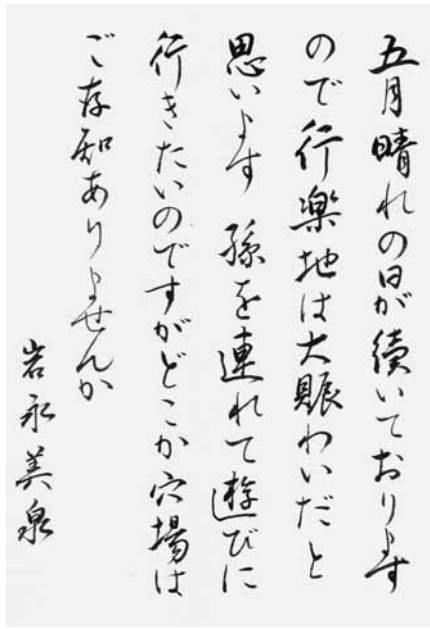 五月晴れの日が続いております
ので行楽地は大賑わいだと
思います　孫を連れて遊びに
行きたいのですがどこか穴場は
ご存知ありませんか
岩永美泉